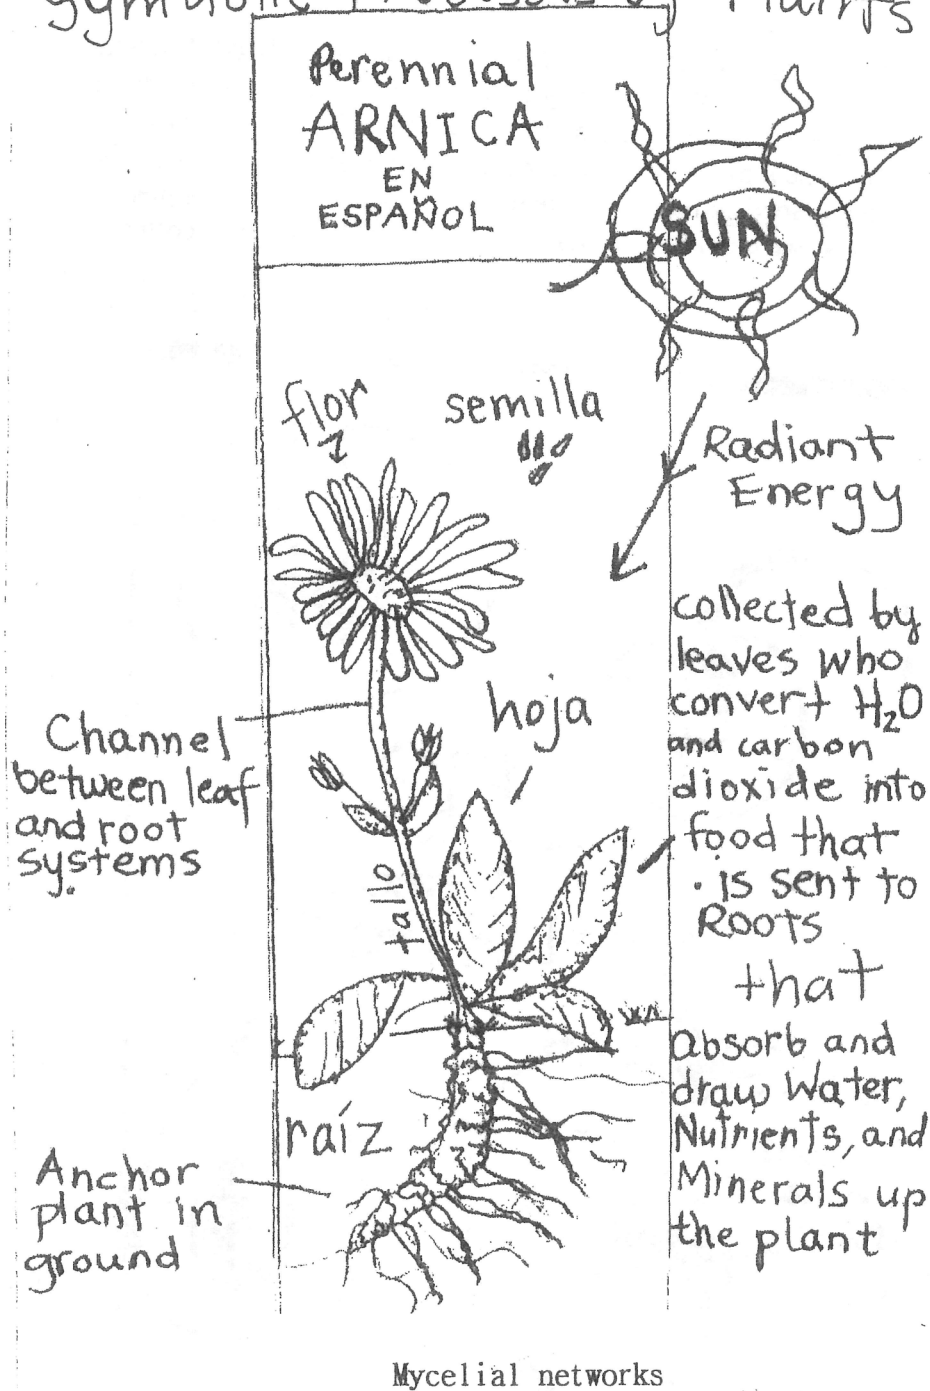 Plants
Perennial
ARNICA
EN
ESPAÑOL
SUN
flor
semilla
Radiant
Energy
collected by
leaves who
convert H₂O
and carbon
dioxide into
food that
is sent to
ROOTS
that
absorb and
draw Water,
Nutrients, and
Minerals up
the plant
hoja
Channel
between leaf
and root
systems
tallo
raíz
Anchor
plant in
ground
Mycelial networks